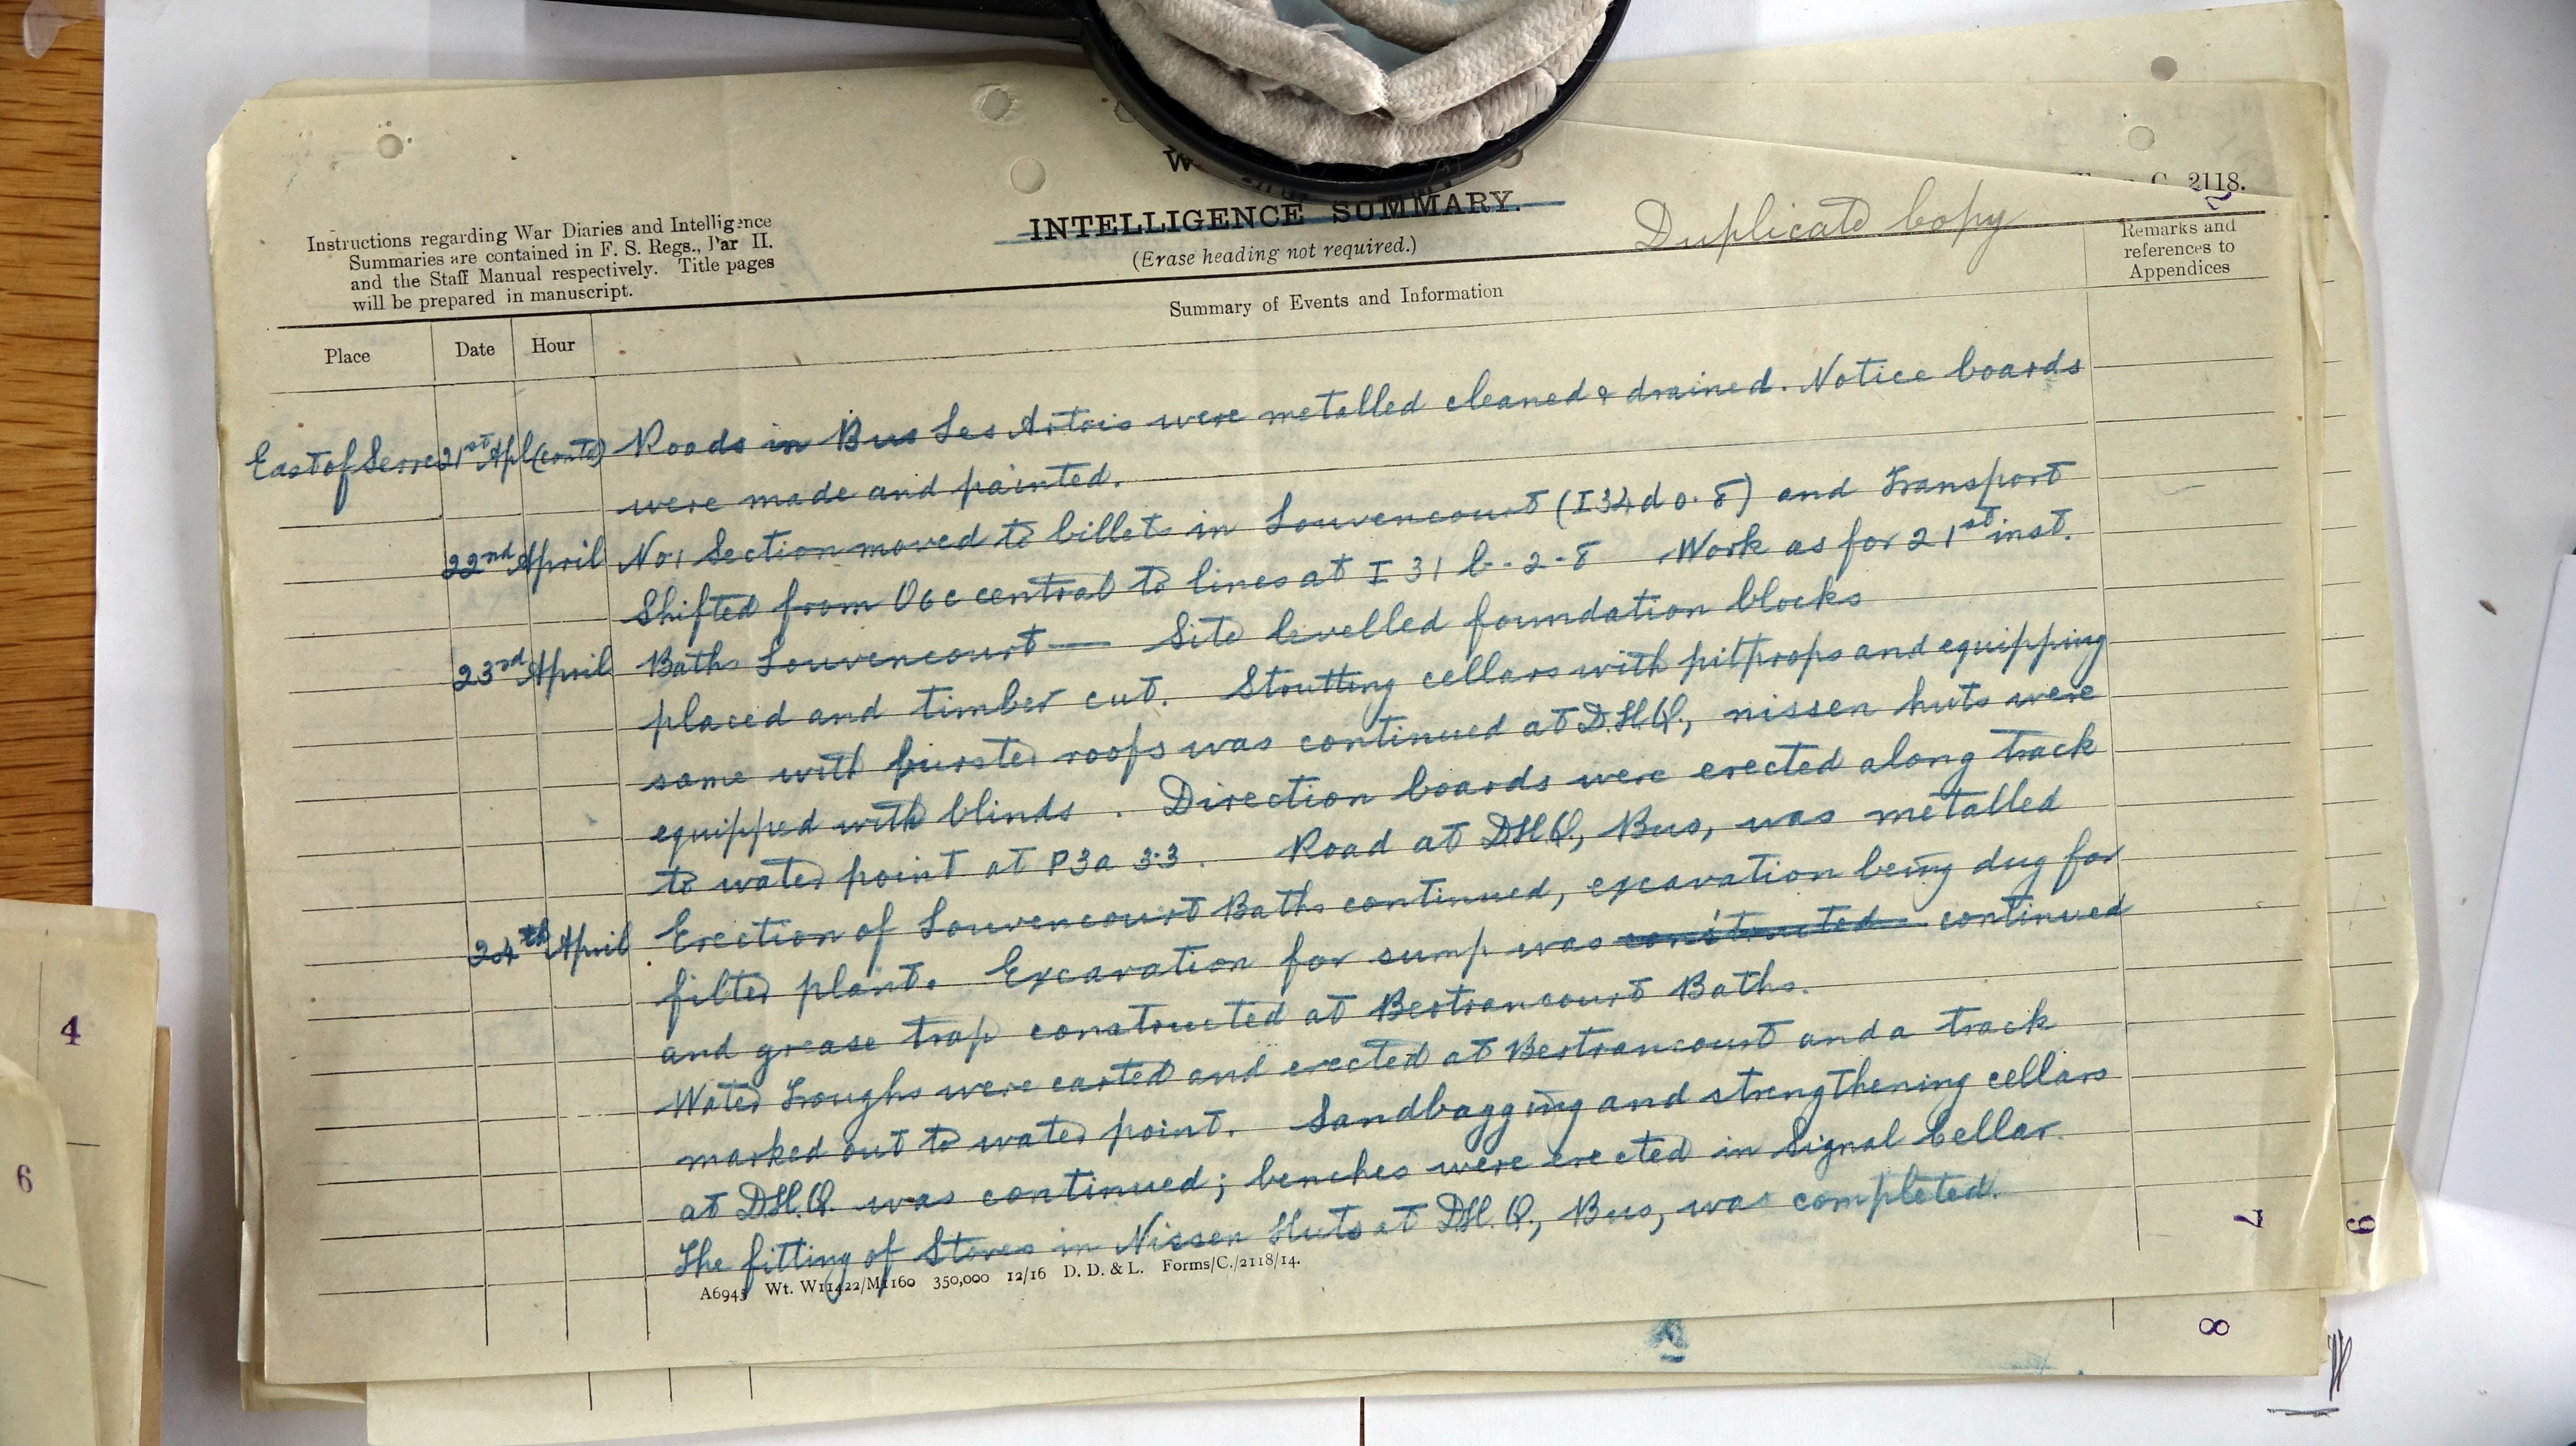 C. 2118.
INTELLIGENCE SUMMARY.
(Erase heading not required.)
Duplicate Copy
Instructions regarding War Diaries and Intelligence
Summaries are contained in F. S. Regs., Par II.
and the Staff Manual respectively. Title pages
will be prepared in manuscript.
Summary of Events and Information
Remarks and
references to
Appendices
Place Date Hour
East of Serre 21st Apl (contd) Roads in Bus Les Artois were metalled cleaned & drained. Notice boards
were made and painted.
22nd April No 1 Section moved to billets in Louvencourt (I 34 d 0.8) and Transport
Shifted from O6c central to lines at I 31 b - 2 - 8 Work as for 21st inst.
23rd April Baths Louvencourt — Site levelled foundation blocks
placed and timber cut. Strutting cellars with pitprops and equipping
same with burster roofs was continued at D.H.Q., nissen huts were
equipped with blinds. Direction boards were erected along track
to water point at P3a 3.3. Road at DHQ, Bus, was metalled
24th April Erection of Louvencourt Baths continued, excavation being dug for
filter plant. Excavation for sump was constructed continued
and grease trap constructed at Bertrancourt Baths.
Water Troughs were carted and erected at Bertrancourt and a track
marked out to water point. Sandbagging and strengthening cellars
at DH.Q. was continued; benches were erected in Signal Cellar.
The fitting of Stoves in Nissen Huts at DH.Q., Bus, was completed.
A6945 Wt. W11422/M1160 350,000 12/16 D. D. & L. Forms/C./2118/14.
7
9
8
4
6